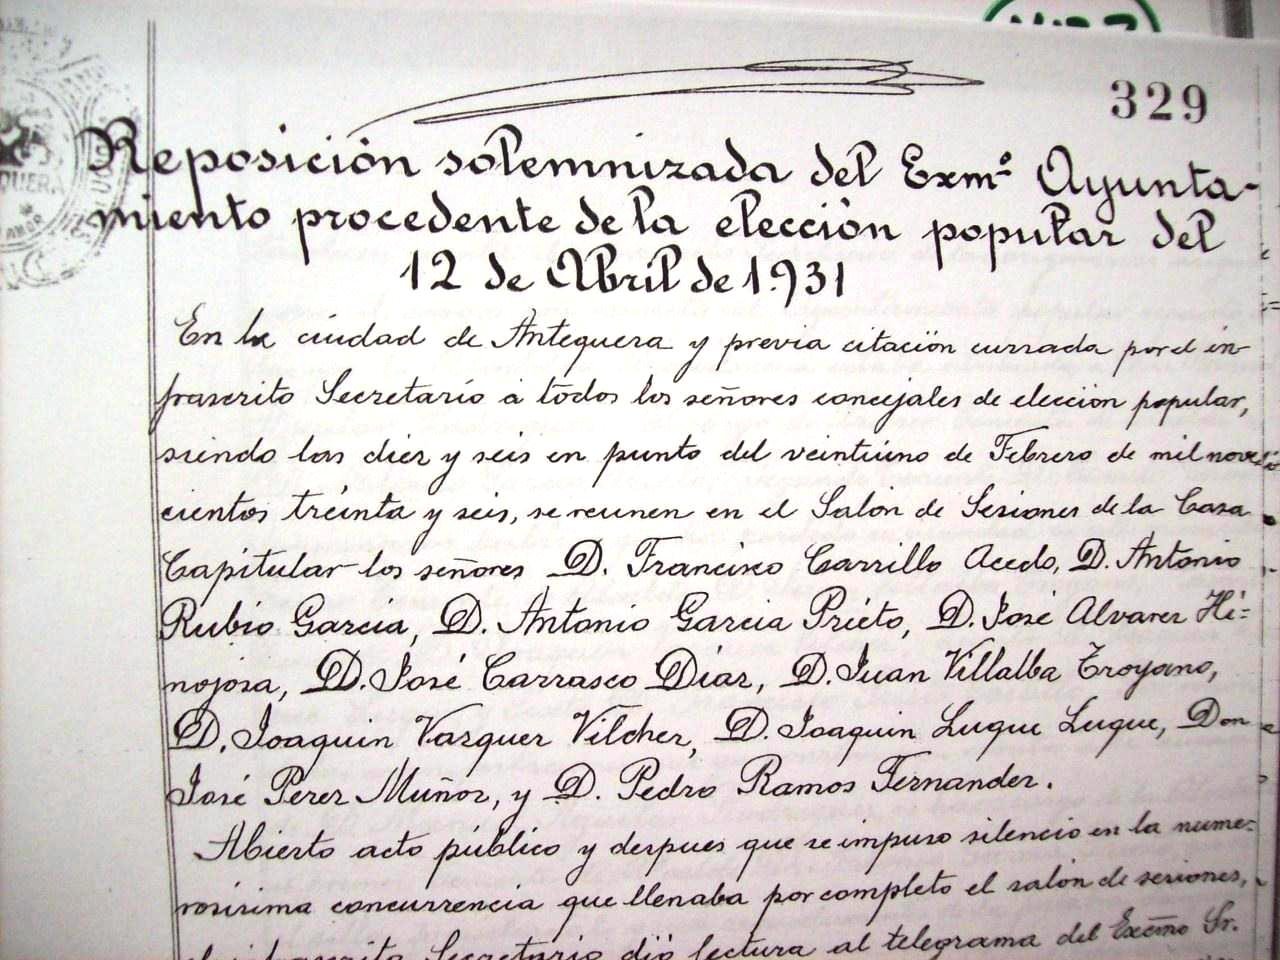 329
Reposición solemnizada del Exmº Ayunta-
miento procedente de la elección popular del
12 de Abril de 1.931
En la ciudad de Antequera y previa citación cursada por el in-
frascrito Secretario á todos los señores concejales de elección popular,
siendo las diez y seis en punto del veintiuno de Febrero de mil nove-
cientos treinta y seis, se reunen en el Salón de Sesiones de la Casa
Capitular los señores D. Francisco Carrillo Acedo, D. Antonio
Rubio Garcia, D. Antonio Garcia Prieto, D. José Alvarez Hi=
nojosa, D. José Carrasco Diaz, D. Juan Villalba Troyano,
D. Joaquin Vazquez Vilchez, D. Joaquin Luque Luque, Don
José Pérez Muñoz, y D. Pedro Ramos Fernandez.
Abierto acto público y despues que se impuso silencio en la nume-
rosisima concurrencia que llenaba por completo el salón de sesiones,
el infrascrito Secretario dió lectura al telegrama del Excmo Sr.